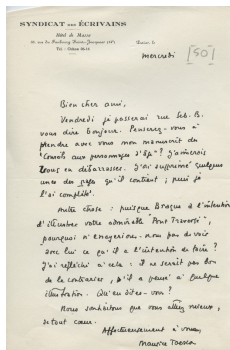 SYNDICAT DES ÉCRIVAINS
Hôtel de Massa
38, rue du Faubourg Saint-Jacques (14e)
Paris, le
mercredi
[50]
Bien cher ami,
Vendredi je passerai rue Seb. B.
vous dire bonjour. Penserez-vous à
prendre avec vous mon manuscrit de
"Conseils aux personnages d'âge"? J'aimerais
vous en débarrasser. J'ai supprimé quelques
unes des pages qu'il contient; puis je
l'ai complété.
Autre chose : puisque Braque a l'intention
d'illustrer votre admirable "Pont Traversé",
pourquoi n'essayerions-nous pas de voir
avec lui ce qu'il a l'intention de faire ?
J'ai réfléchi à cela : il ne serait pas bon
de le contrarier, s'il a pensé à quelque
illustration. Qu'en dites-vous ?
Nous souhaitons que vous alliez mieux,
de tout cœur.
Affectueusement à vous,
Maurice Toesca